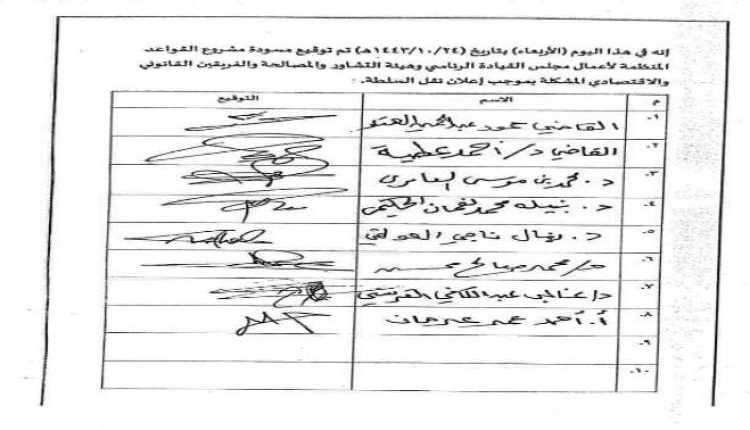 إنه في هذا اليوم (الأربعاء) بتاريخ (١٤٤٣/١٠/٢٤هـ) تم توقيع مسودة مشروع القواعد
المنظمة لأعمال مجلس القيادة الرئاسي وهيئة التشاور والمصالحة والفريقين القانوني
والاقتصادي المشكلة بموجب إعلان نقل السلطة.
م الاسم التوقيع
١. القاضي حمود عبدالحميد الهتار
٢. القاضي د/أحمد عطية
٣. د. محمد بن موسى العامري
٤. د. نبيله محمد نعمان الحكيمي
٥. د. نهال ناجي العولقي
٦. د/محمد صالح محسن
٧. د/عبدالغني القرشي
٨. أ. أحمد عمر عرمان
٩.
١٠.